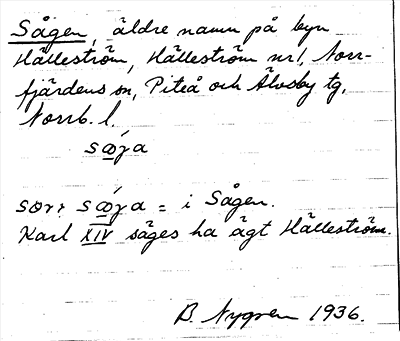 Sågen, äldre namn på byn
Hälleström, Hälleström nr 1, Norr-
fjärdens sn, Piteå och Älvsby tg,
Norrb. l.
sɷ́ɣa
sɷ́ɣa = i Sågen.
Karl XIV säges ha ägt Hälleström.
B. Nygren 1936.